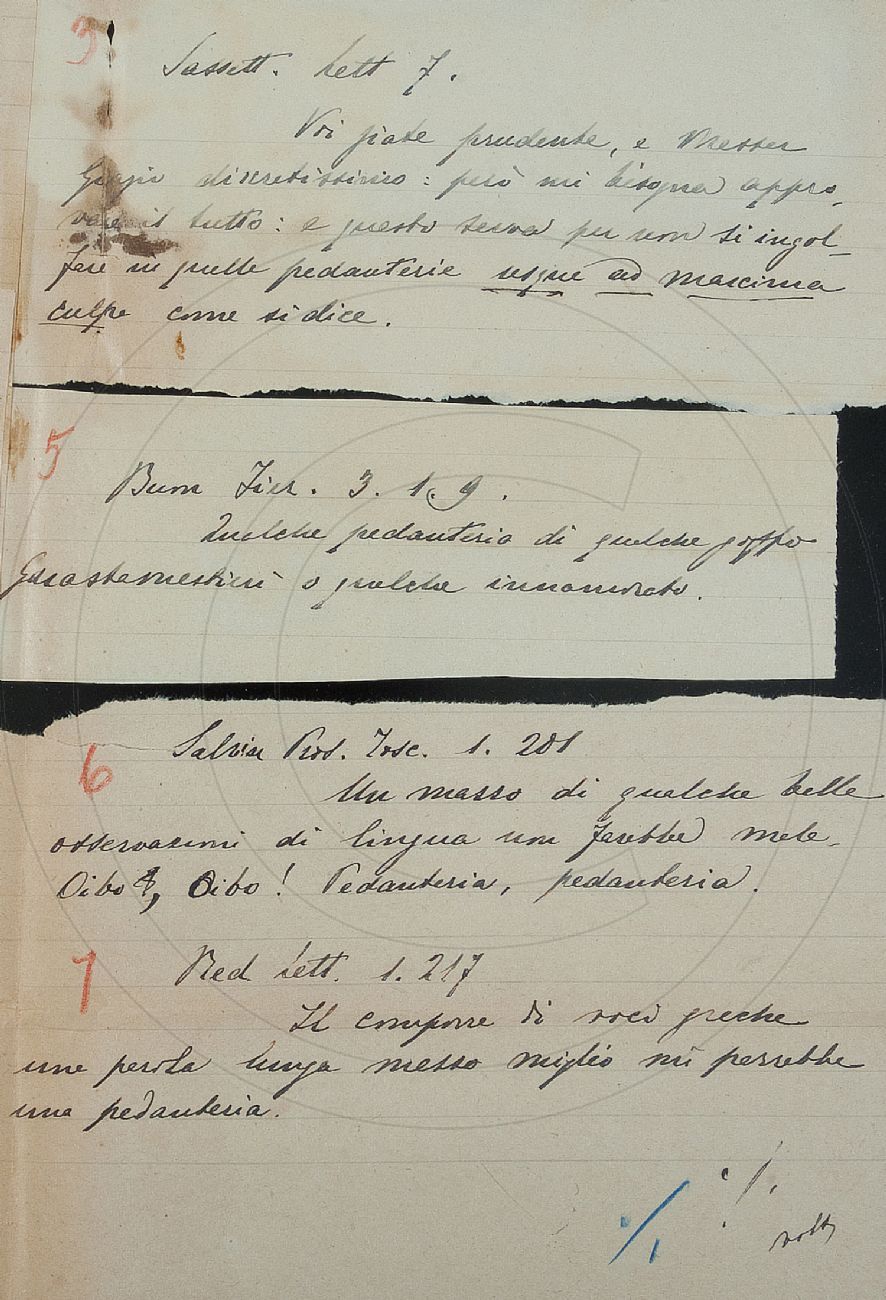 3
Sassett. Lett 7.
Voi siate prudente, e Messer
discretissimo: però mi bisogna appro-
vare il tutto: e questo serva per non si ingol-
fare in quelle pedanterie usque ad mascima
culpe come si dice.
5
Buon Fier. 3. 1. 9.
Qualche pedanteria di qualche goffo
Guastamestieri o qualche innamorato.
6
Salvin Pros. Tosc. 1. 201
Un masso di qualche belle
osservazioni di lingua non farebbe male.
Oibo, Oibo! Pedanteria, pedanteria.
7
Red Lett. 1. 217
Il comporre di voci greche
une parola lunga mezzo miglio mi parrebbe
una pedanteria.
./.
./.
volt